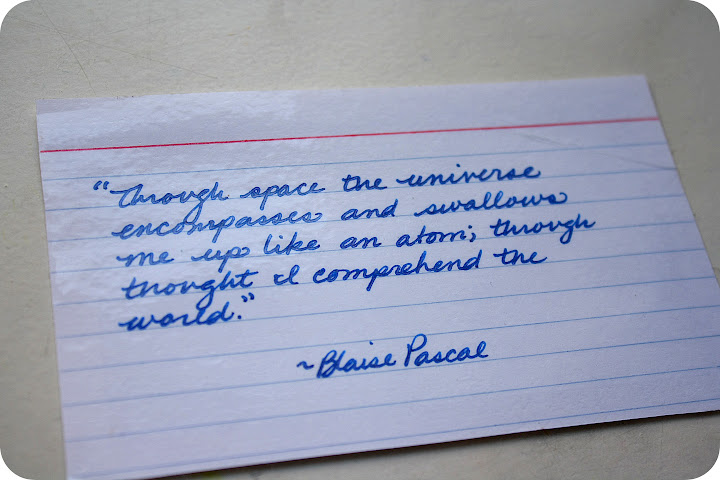 “Through space the universe
encompasses and swallows
me up like an atom; through
thought I comprehend the
world.”
~Blaise Pascal